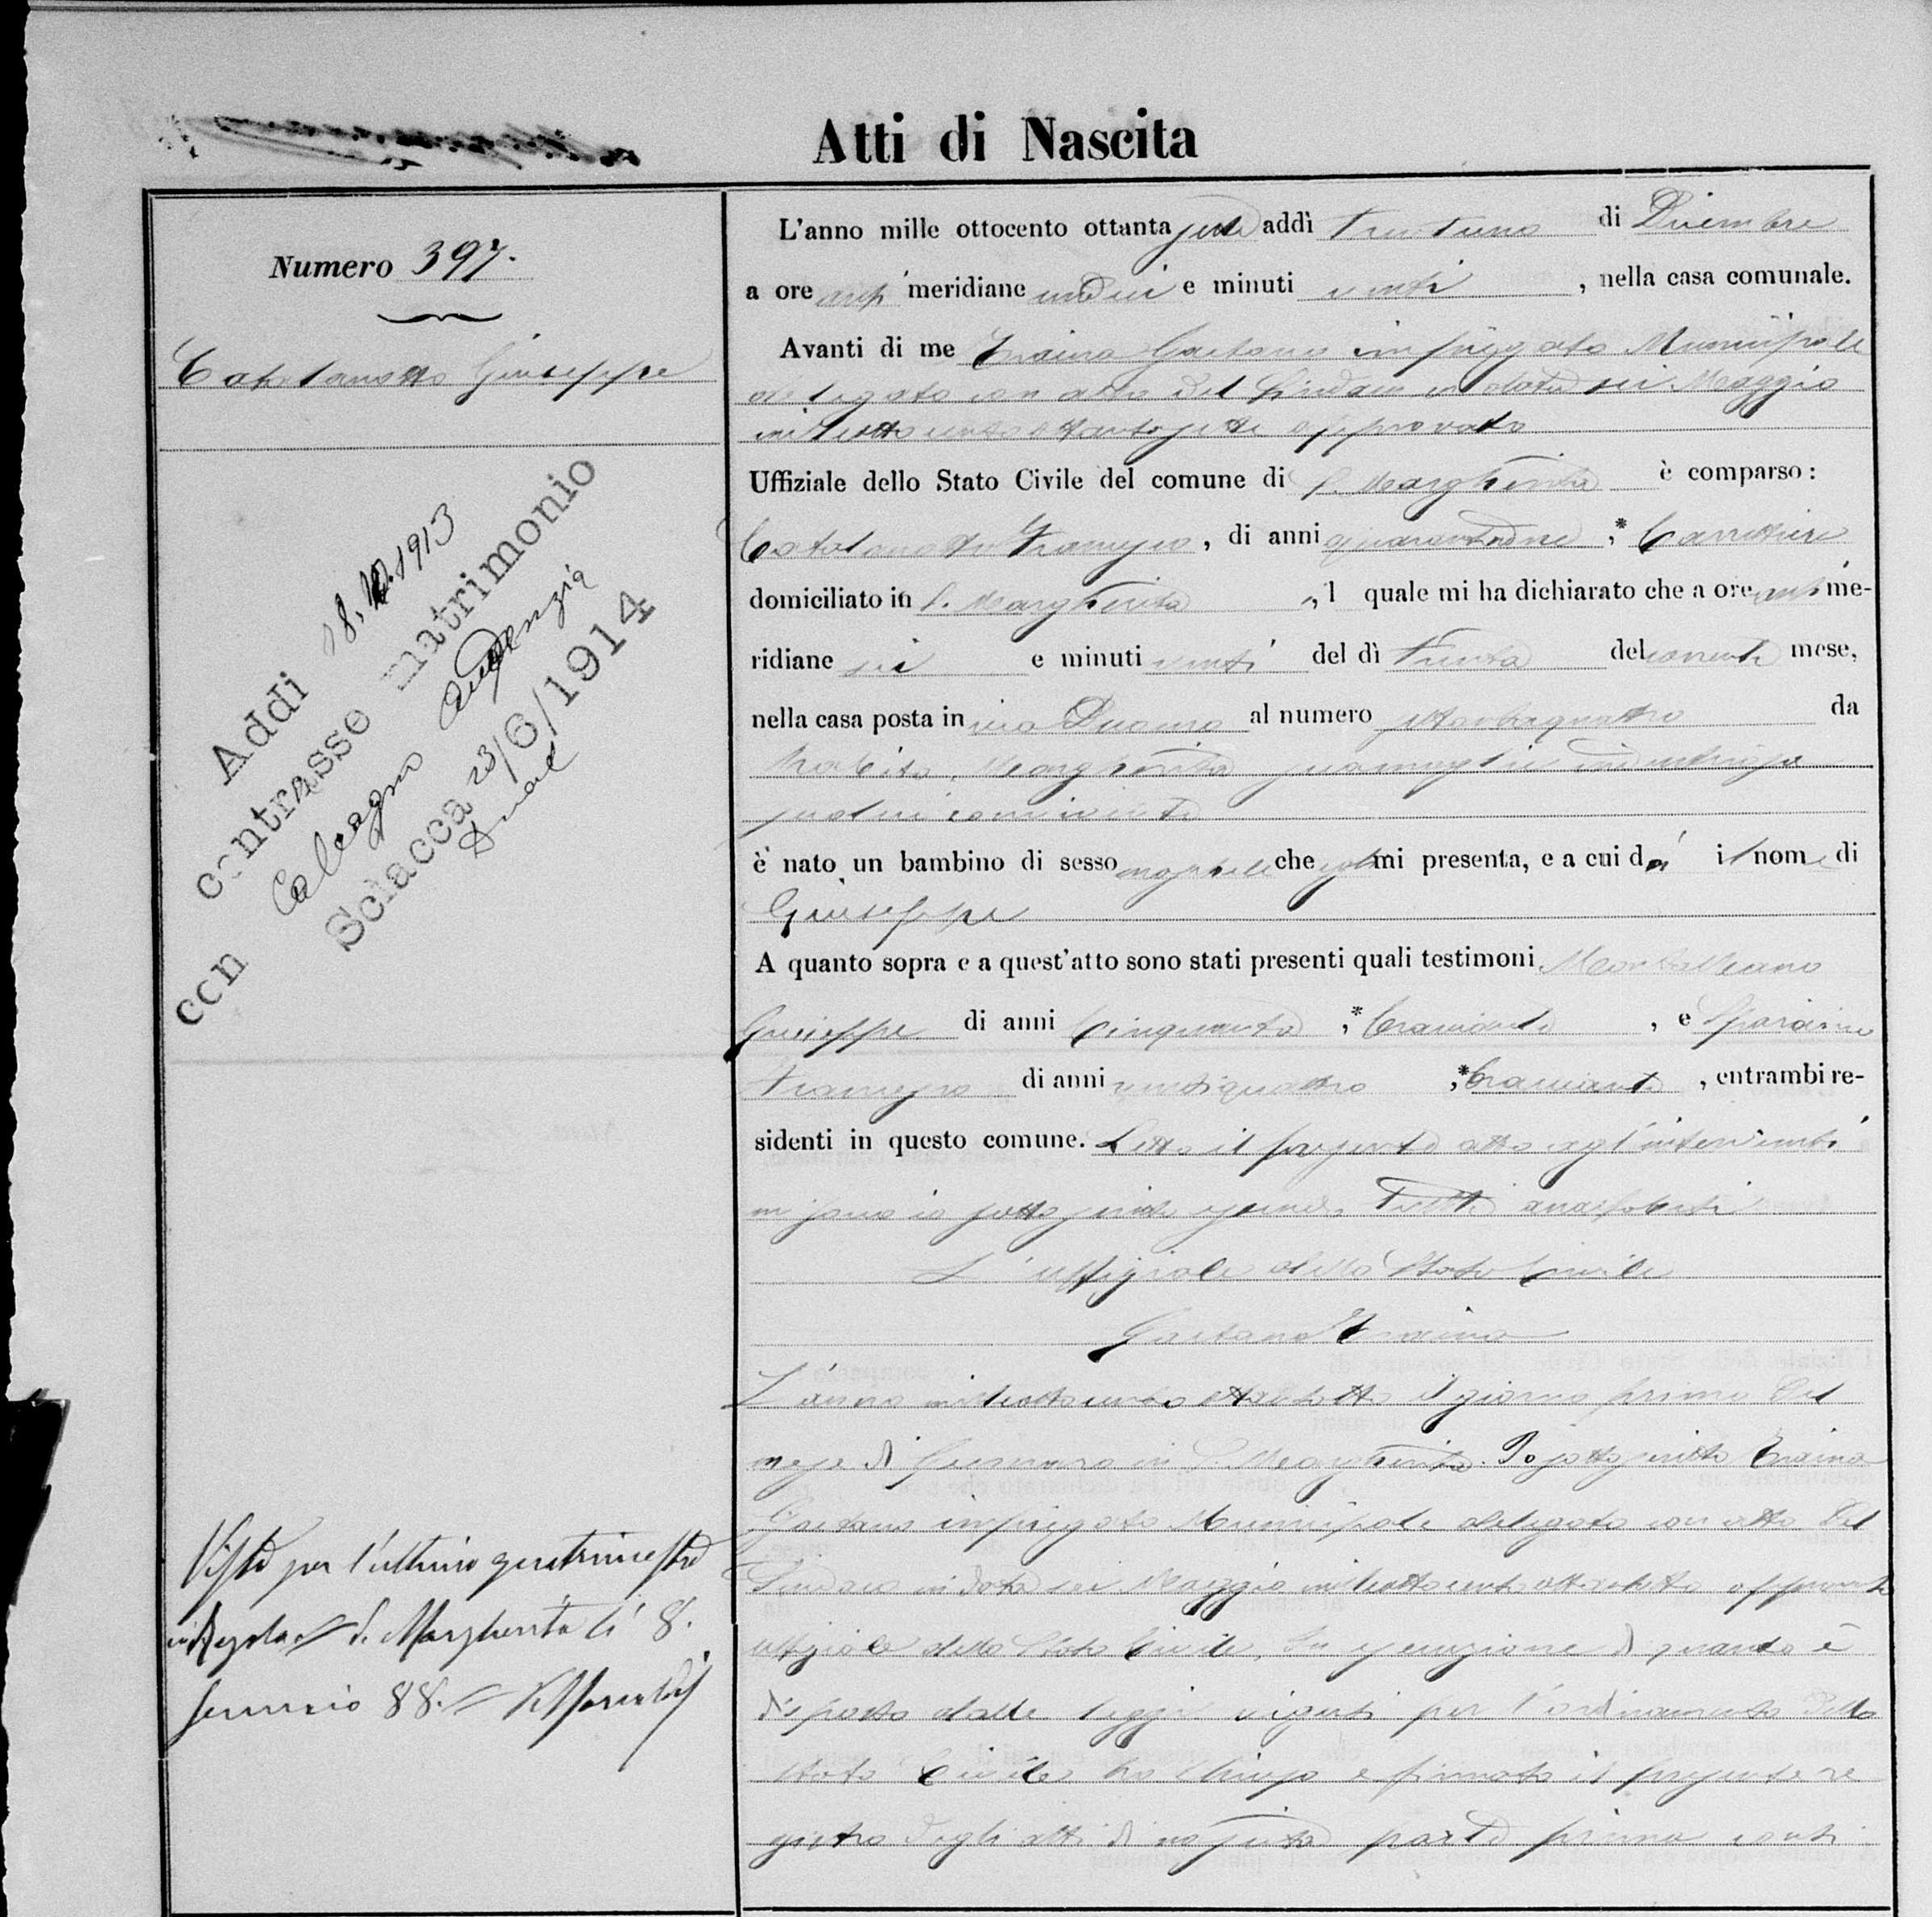 Atti di Nascita
Numero 397.
Catalanotto Giuseppe
Addì 18.10.1913
contrasse matrimonio
con Calcagno Audenzia
Sciacca 23/6/1914
L'anno mille ottocento ottanta sette addì trentuno di Dicembre
a ore anti meridiane undici e minuti venti, nella casa comunale.
Avanti di me Traina Gaetano impiegato Municipale
delegato con atto del Sindaco in data sei Maggio
milleottocentottantasette approvato
Uffiziale dello Stato Civile del comune di S. Margherita è comparso:
Catalanotto Francesco, di anni quarantadue, * Carrettiere
domiciliato in S. Margherita, il quale mi ha dichiarato che a ore anti me-
ridiane sei e minuti venti del dì trenta del corrente mese,
nella casa posta in via al numero settantaquattro da
Margherita sua moglie
seco lui convivente
è nato un bambino di sesso maschile che egli mi presenta, e a cui dà il nome di
Giuseppe
A quanto sopra e a quest'atto sono stati presenti quali testimoni Montalbano
Giuseppe di anni cinquanta, * bracciante, e Sparacino
Francesco di anni ventiquattro, * bracciante, entrambi re-
sidenti in questo comune. Letto il presente atto agl'intervenuti
mi sono io sottoscritto essendo tutti analfabeti
L'uffiziale dello Stato Civile
Gaetano Traina
L'anno milleottocento ottantotto il giorno primo del
mese di Gennaro in S. Margherita. Io sottoscritto Traina
Gaetano impiegato Municipale delegato con atto del
Sindaco in data sei Maggio milleottocento ottantasette approvato
uffiziale dello Stato Civile, in esecuzione di quanto è
disposto dalle leggi vigenti per l'ordinamento dello
stato Civile ho chiuso e firmato il presente re
gistro degli atti di nascita parte prima conti
Visto per l'ultimo quatrimestre
in Regola S. Margherita lì 8.
Gennaio 88.